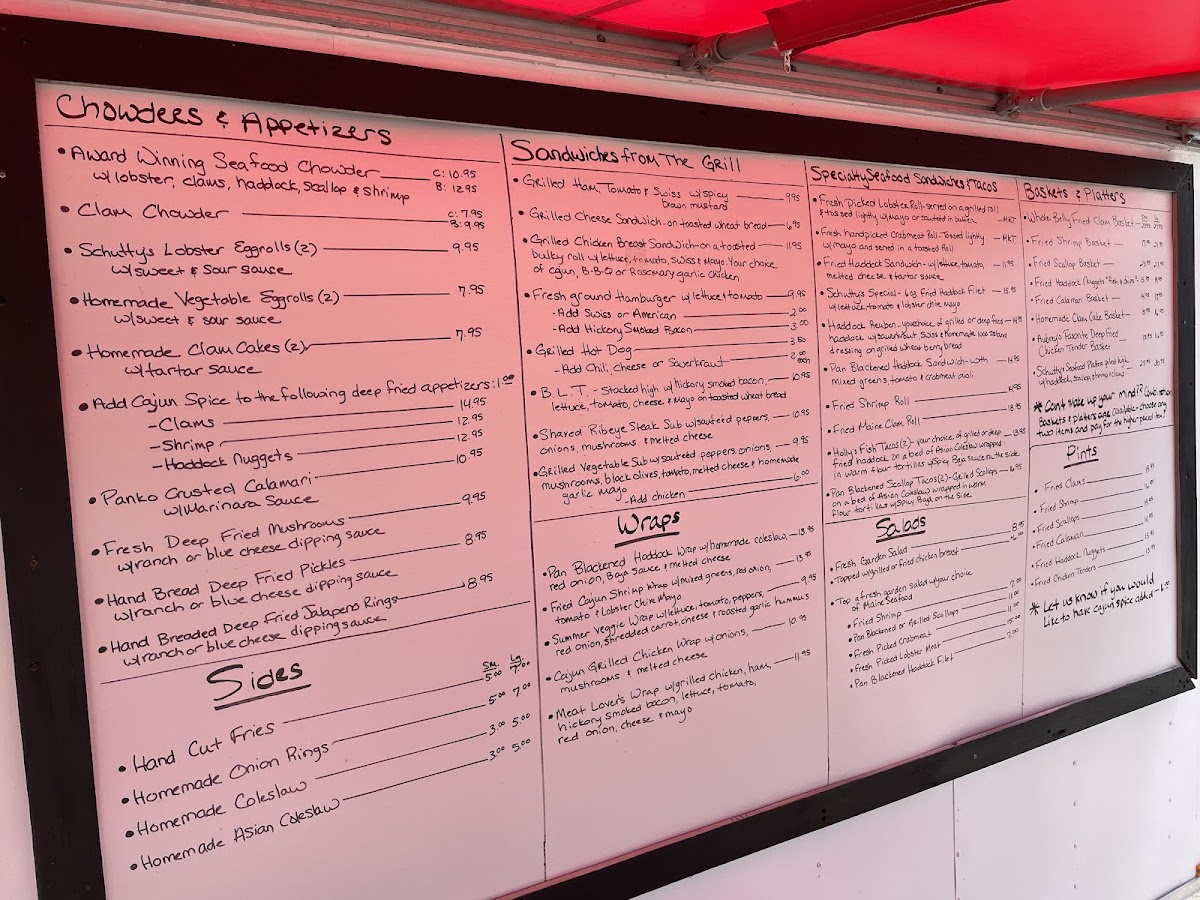 Chowders & Appetizers
• Award Winning Seafood Chowder C: 10.95
w/lobster, clams, haddock, scallop & shrimp B: 12.95
• Clam Chowder C: 7.95
B: 9.95
• Schutty's Lobster Eggrolls (2) 9.95
w/sweet & sour sauce
• Homemade Vegetable Eggrolls (2) 7.95
w/sweet & sour sauce
• Homemade Clam Cakes (2) 7.95
w/tartar sauce
• Add Cajun Spice to the following deep fried appetizers: 1.00
- Clams 14.95
- Shrimp 12.95
- Haddock Nuggets 12.95
• Panko Crusted Calamari 10.95
w/Marinara Sauce
• Fresh Deep Fried Mushrooms 9.95
w/ranch or blue cheese dipping sauce
• Hand Bread Deep Fried Pickles 8.95
w/ranch or blue cheese dipping sauce
• Hand Breaded Deep Fried Jalapeno Rings 8.95
w/ranch or blue cheese dipping sauce
Sides
Sm. Lg.
• Hand Cut Fries 5.00 7.00
• Homemade Onion Rings 5.00 7.00
• Homemade Coleslaw 3.00 5.00
• Homemade Asian Coleslaw 3.00 5.00
Sandwiches from The Grill
• Grilled Ham, Tomato & Swiss w/spicy 9.95
brown mustard
• Grilled Cheese Sandwich - on toasted wheat bread 6.95
• Grilled Chicken Breast Sandwich - on a toasted 11.95
bulky roll w/lettuce, tomato, swiss & Mayo. Your choice
of cajun, B-B-Q or Rosemary garlic chicken
• Fresh ground Hamburger w/lettuce, tomato 9.95
- Add Swiss or American 2.00
- Add Hickory Smoked Bacon 3.00
• Grilled Hot Dog 3.50
- Add Chili, cheese or Sauerkraut 2.00 each
• B.L.T. - Stacked high w/hickory smoked bacon, 10.95
lettuce, tomato, cheese & Mayo on toasted wheat bread
• Shaved Ribeye Steak Sub w/sauteéd peppers, 10.95
onions, mushrooms & melted cheese
• Grilled Vegetable Sub w/sauteéd peppers, onions, 9.95
mushrooms, black olives, tomato, melted cheese & homemade
garlic mayo
- Add chicken 6.00
Wraps
• Pan Blackened Haddock Wrap w/homemade coleslaw, 13.95
red onion, Baja Sauce & melted cheese
• Fried Cajun Shrimp Wrap w/mixed greens, red onion, 13.95
tomato & Lobster Chive Mayo
• Summer Veggie Wrap w/lettuce, tomato, peppers, 9.95
red onion, shredded carrot, cheese & roasted garlic hummus
• Cajun Grilled Chicken Wrap w/onions, 10.95
mushrooms & melted cheese
• Meat Lover's Wrap w/grilled chicken, ham, 11.95
hickory smoked bacon, lettuce, tomato,
red onion, cheese & mayo
Specialty Seafood Sandwiches & Tacos
• Fresh Picked Lobster Roll - served on a grilled roll
& tossed lightly w/mayo or sautéed in butter MKT
• Fresh handpicked Crabmeat Roll - Tossed lightly MKT
w/mayo and served in a toasted Roll
• Fried Haddock Sandwich - w/lettuce, tomato, 11.95
melted cheese & tartar sauce
• Schutty's Special - 6oz. Fried Haddock Filet 15.95
w/lettuce, tomato & lobster chive mayo
• Haddock Reuben - your choice of grilled or deep fried 14.95
haddock w/sauerkraut, Swiss & homemade 1000 island
dressing on grilled wheat berry bread
• Pan Blackened Haddock Sandwich - with 14.95
mixed greens, tomato & crabmeat aioli
• Fried Shrimp Roll 14.95
• Fried Maine Clam Roll 18.95
• Holly's Fish Tacos (2) - your choice of grilled or deep 13.95
fried haddock on a bed of Asian Coleslaw wrapped
in warm flour tortillas w/Spicy Baja Sauce on the side
• Pan Blackened Scallop Tacos (2) - Grilled Scallops 16.95
on a bed of Asian Coleslaw wrapped in warm
flour tortillas w/Spicy Baja on the Side
Salads
• Fresh Garden Salad 8.95
• Topped w/grilled or fried chicken breast 6.00
• Top a fresh garden salad w/your choice
of Maine Seafood
• Fried Shrimp 7.00
• Pan Blackened or Grilled Scallops 11.00
• Fresh Picked Crabmeat 11.00
• Fresh Picked Lobster Meat 15.00
• Pan Blackened Haddock Filet 7.00
Baskets & Platters
• Whole Belly Fried Clam Basket
• Fried Shrimp Basket
• Fried Scallop Basket
• Fried Haddock Nuggets "fish & chips"
• Fried Calamari Basket
• Homemade Clam Cake Basket
• Aubrey's Favorite Deep Fried
Chicken Tender Basket
• Schutty's Seafood Platter piled high
w/haddock, scallop, shrimp & clams
* Can't make up your mind? Combination
Baskets & platters are available - choose any
two items and pay for the higher priced item!
Pints
• Fried Clams
• Fried Shrimp
• Fried Scallops
• Fried Calamari
• Fried Haddock Nuggets
• Fried Chicken Tenders
* Let us know if you would
Like to have cajun spice added - 1.00